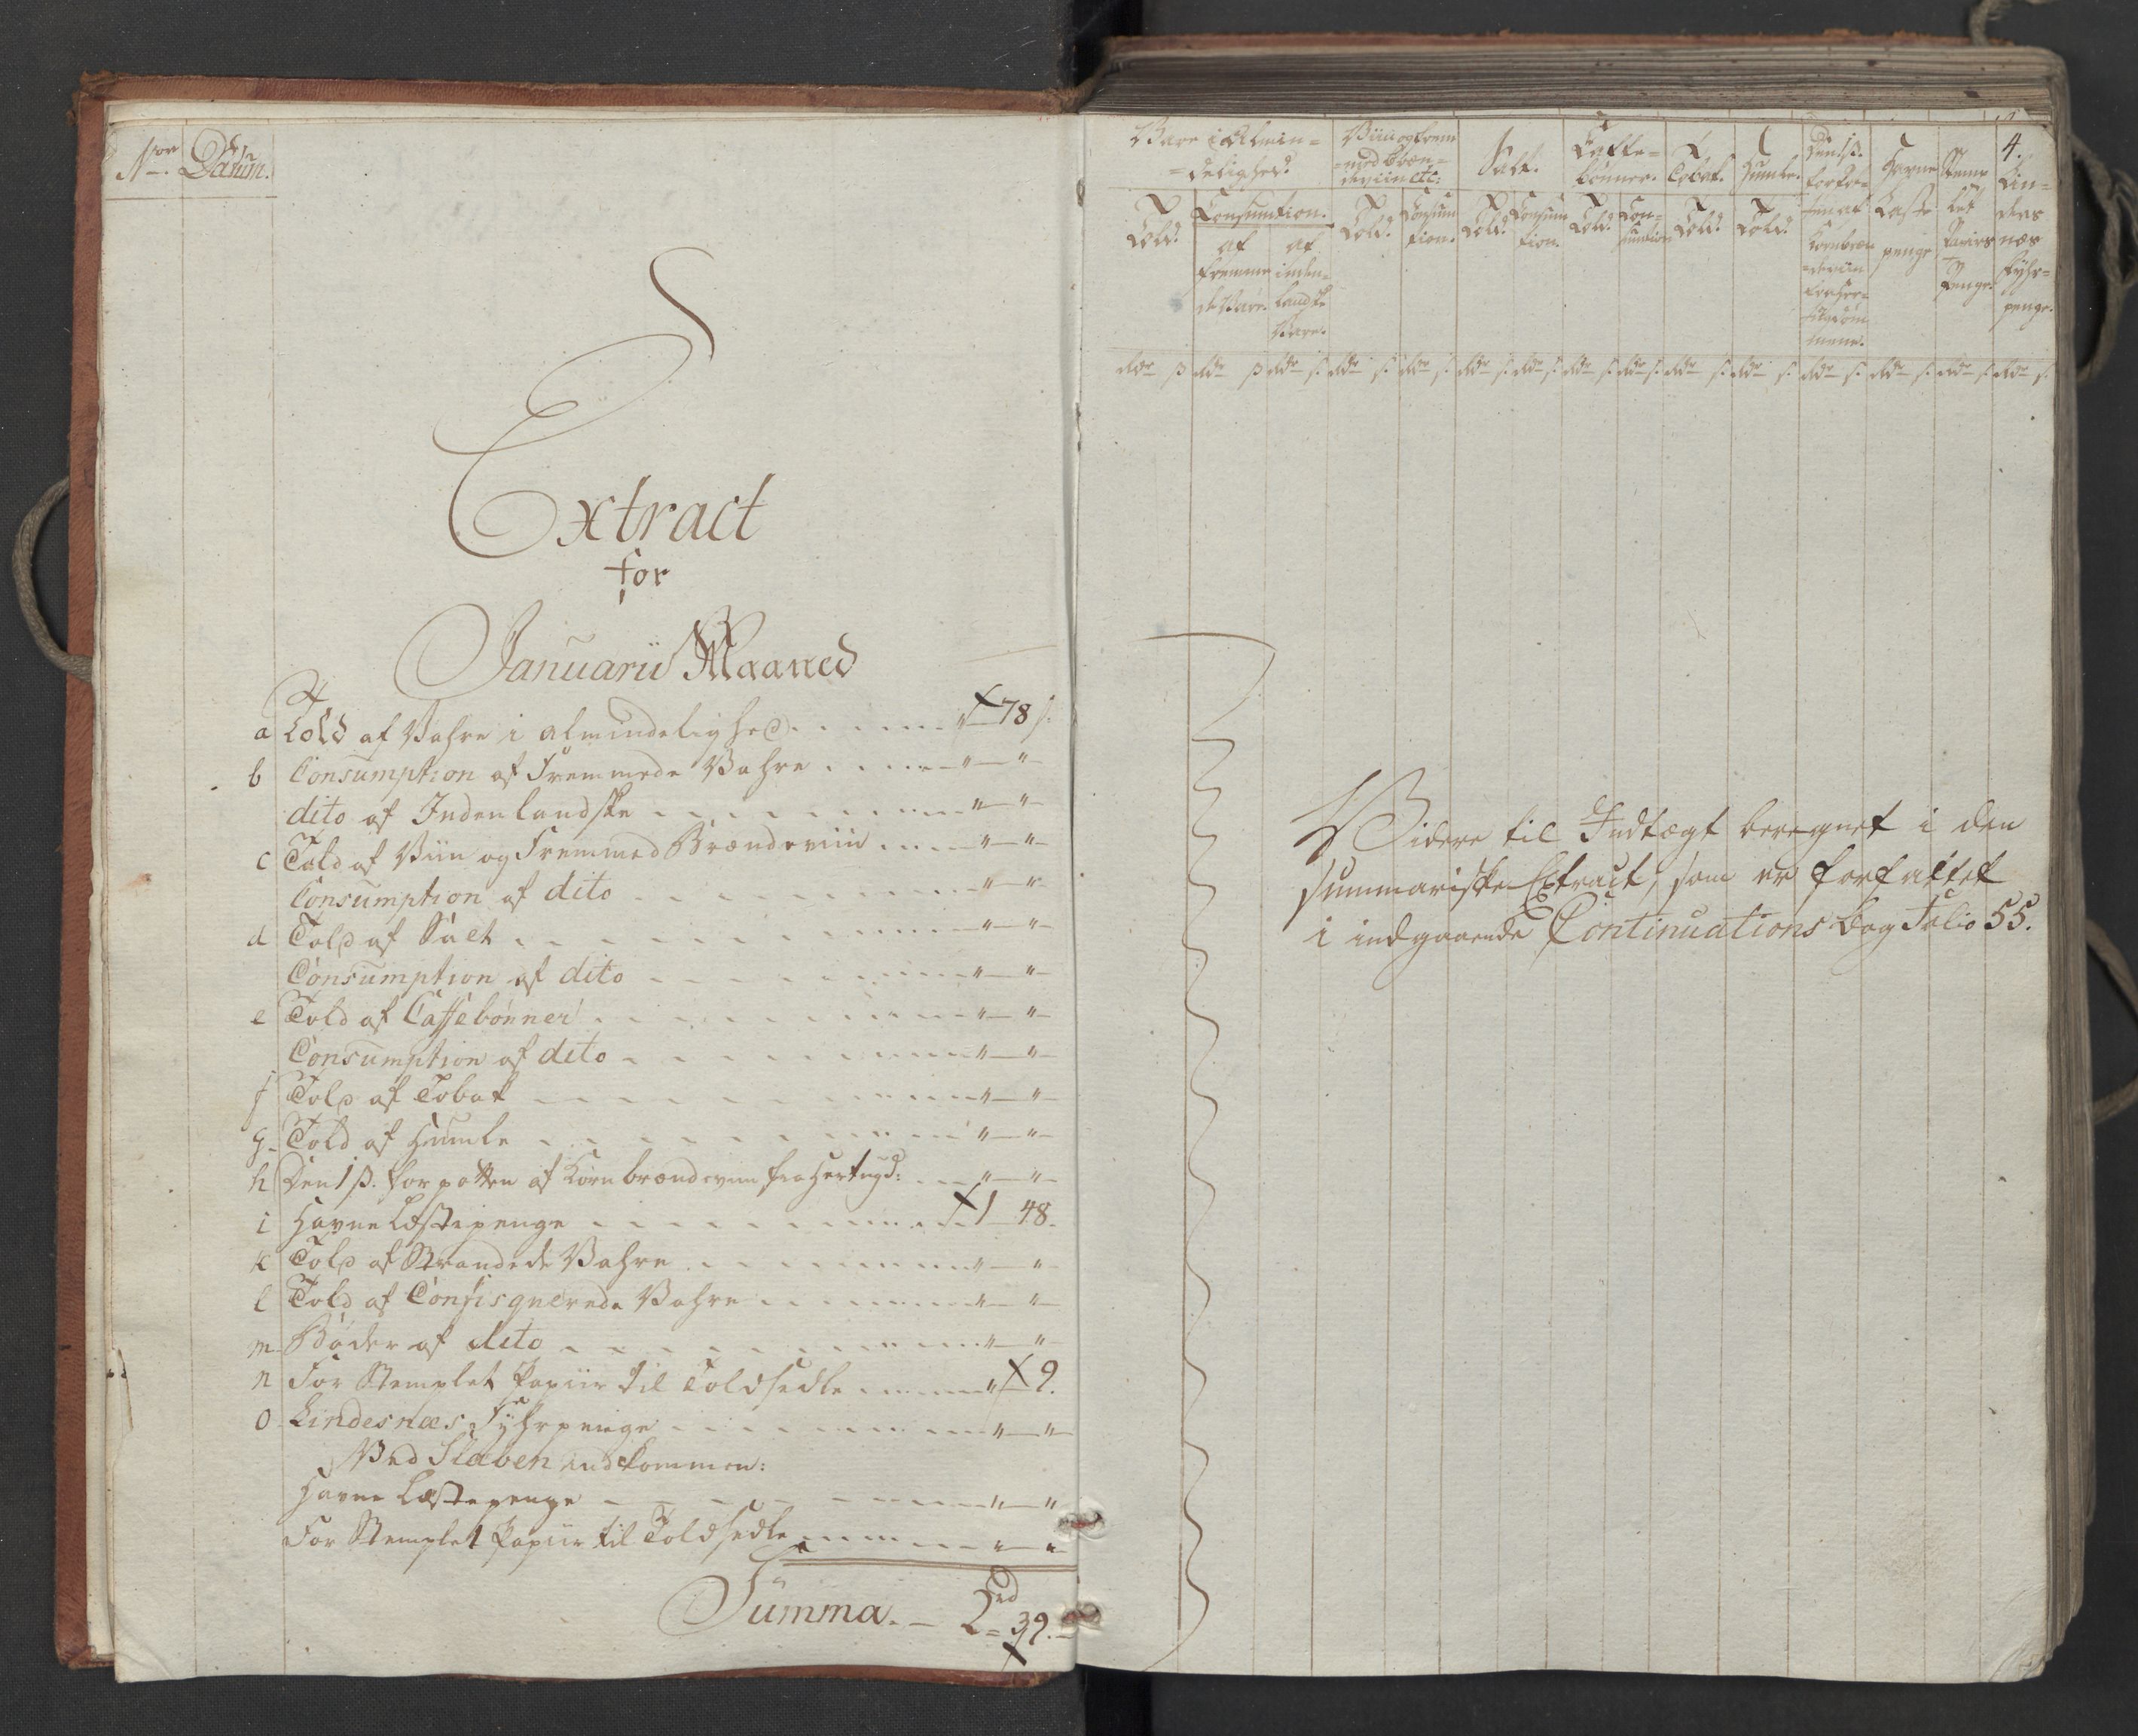 Nor Datum.
Extract
for
Januarii Maaned
a Told af Vahre i almindelighed " 78 s.
b Consumption af Fremmede Vahre " "
dito af Indenlandske " "
c Told af Viin og Fremmed Brændeviin " "
Consumption af dito " "
d Told af Salt " "
Consumption af dito " "
e Told af Caffebønner " "
Consumption af dito " "
f Told af Tobak " "
g Told af Humle " "
h Den 1 ß. for potten af Korn brændeviin fra Hertugd: " "
i Havne Læstepenge 1 48.
k Told af Strandede Vahre " "
l Told af Confisquerede Vahre " "
m Bøder af dito " "
n For Stemplet Papiir til Toldsedle " 9.
o Lindesnæs Fyhrpenge " "
Ved Slaben indkommen:
Havne Læstepenge " "
For Stemplet Papiir til Toldsedle " "
Summa. 2 rd 39.
4.
Vare i Almin=
=delighed.
Told.
Consumtion.
af
fremme
de Vare.
af
inden=
landske
Vare.
Viin og frem
=med Bræn=
deviin etc:
Told.
Consum
tion.
Salt.
Told.
Consum
tion.
Caffe=
bønner.
Told.
Con=
sumtion
Tobak.
Told.
Humle.
Told.
Den 1 ß.
for Pot=
ten af
Kornbræn
=deviin
fra Her=
tugdöm
mene.
Havne
Læste
penge
Stemp
let
Papirs
Penge.
Lin=
des
næs
Fyhr=
penge.
rdr ß rdr ß rdr s. rdr s. rdr s. rdr s. rdr s. rdr s. rdr s. rdr s. rdr s. rdr s. rdr s. rdr s. rdr s.
Videre til Indtægt beregnet i den
summariske Extract, som er forfattet
i indgaaende Continuations bog Folio 55.